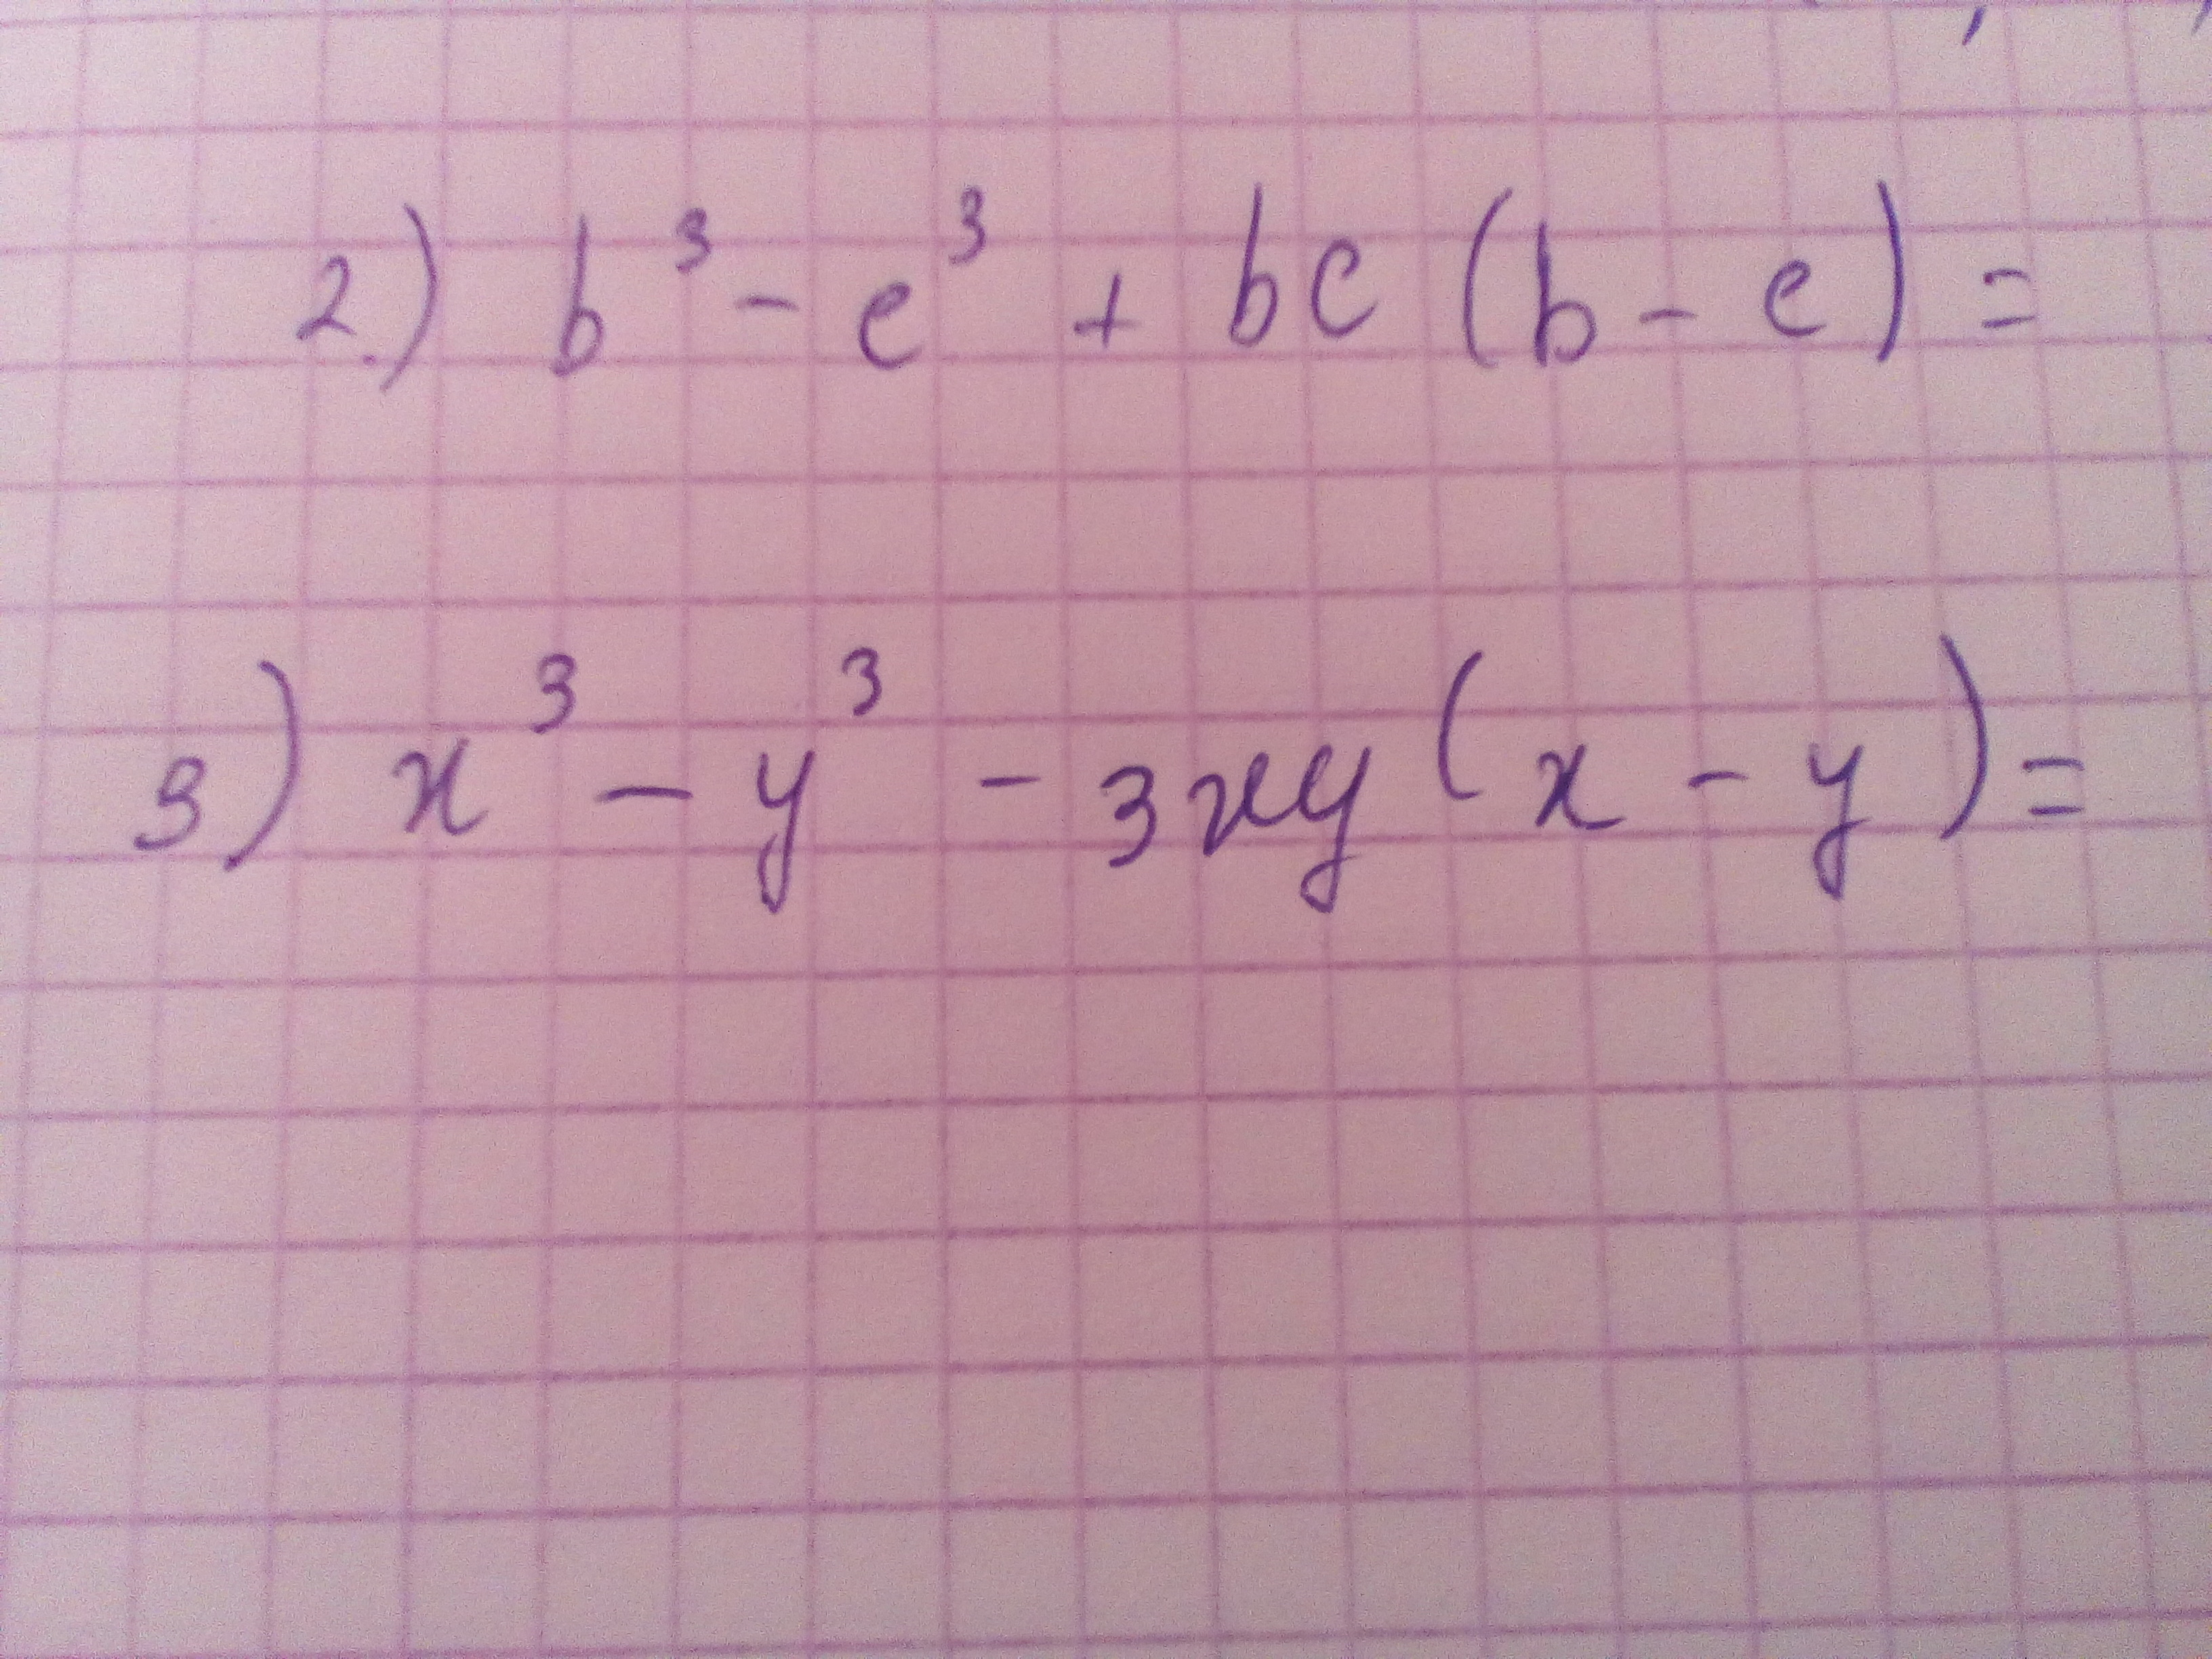 2.) b³ - c³ + bc (b - c) =
3) x³ - y³ - 3xy (x - y) =